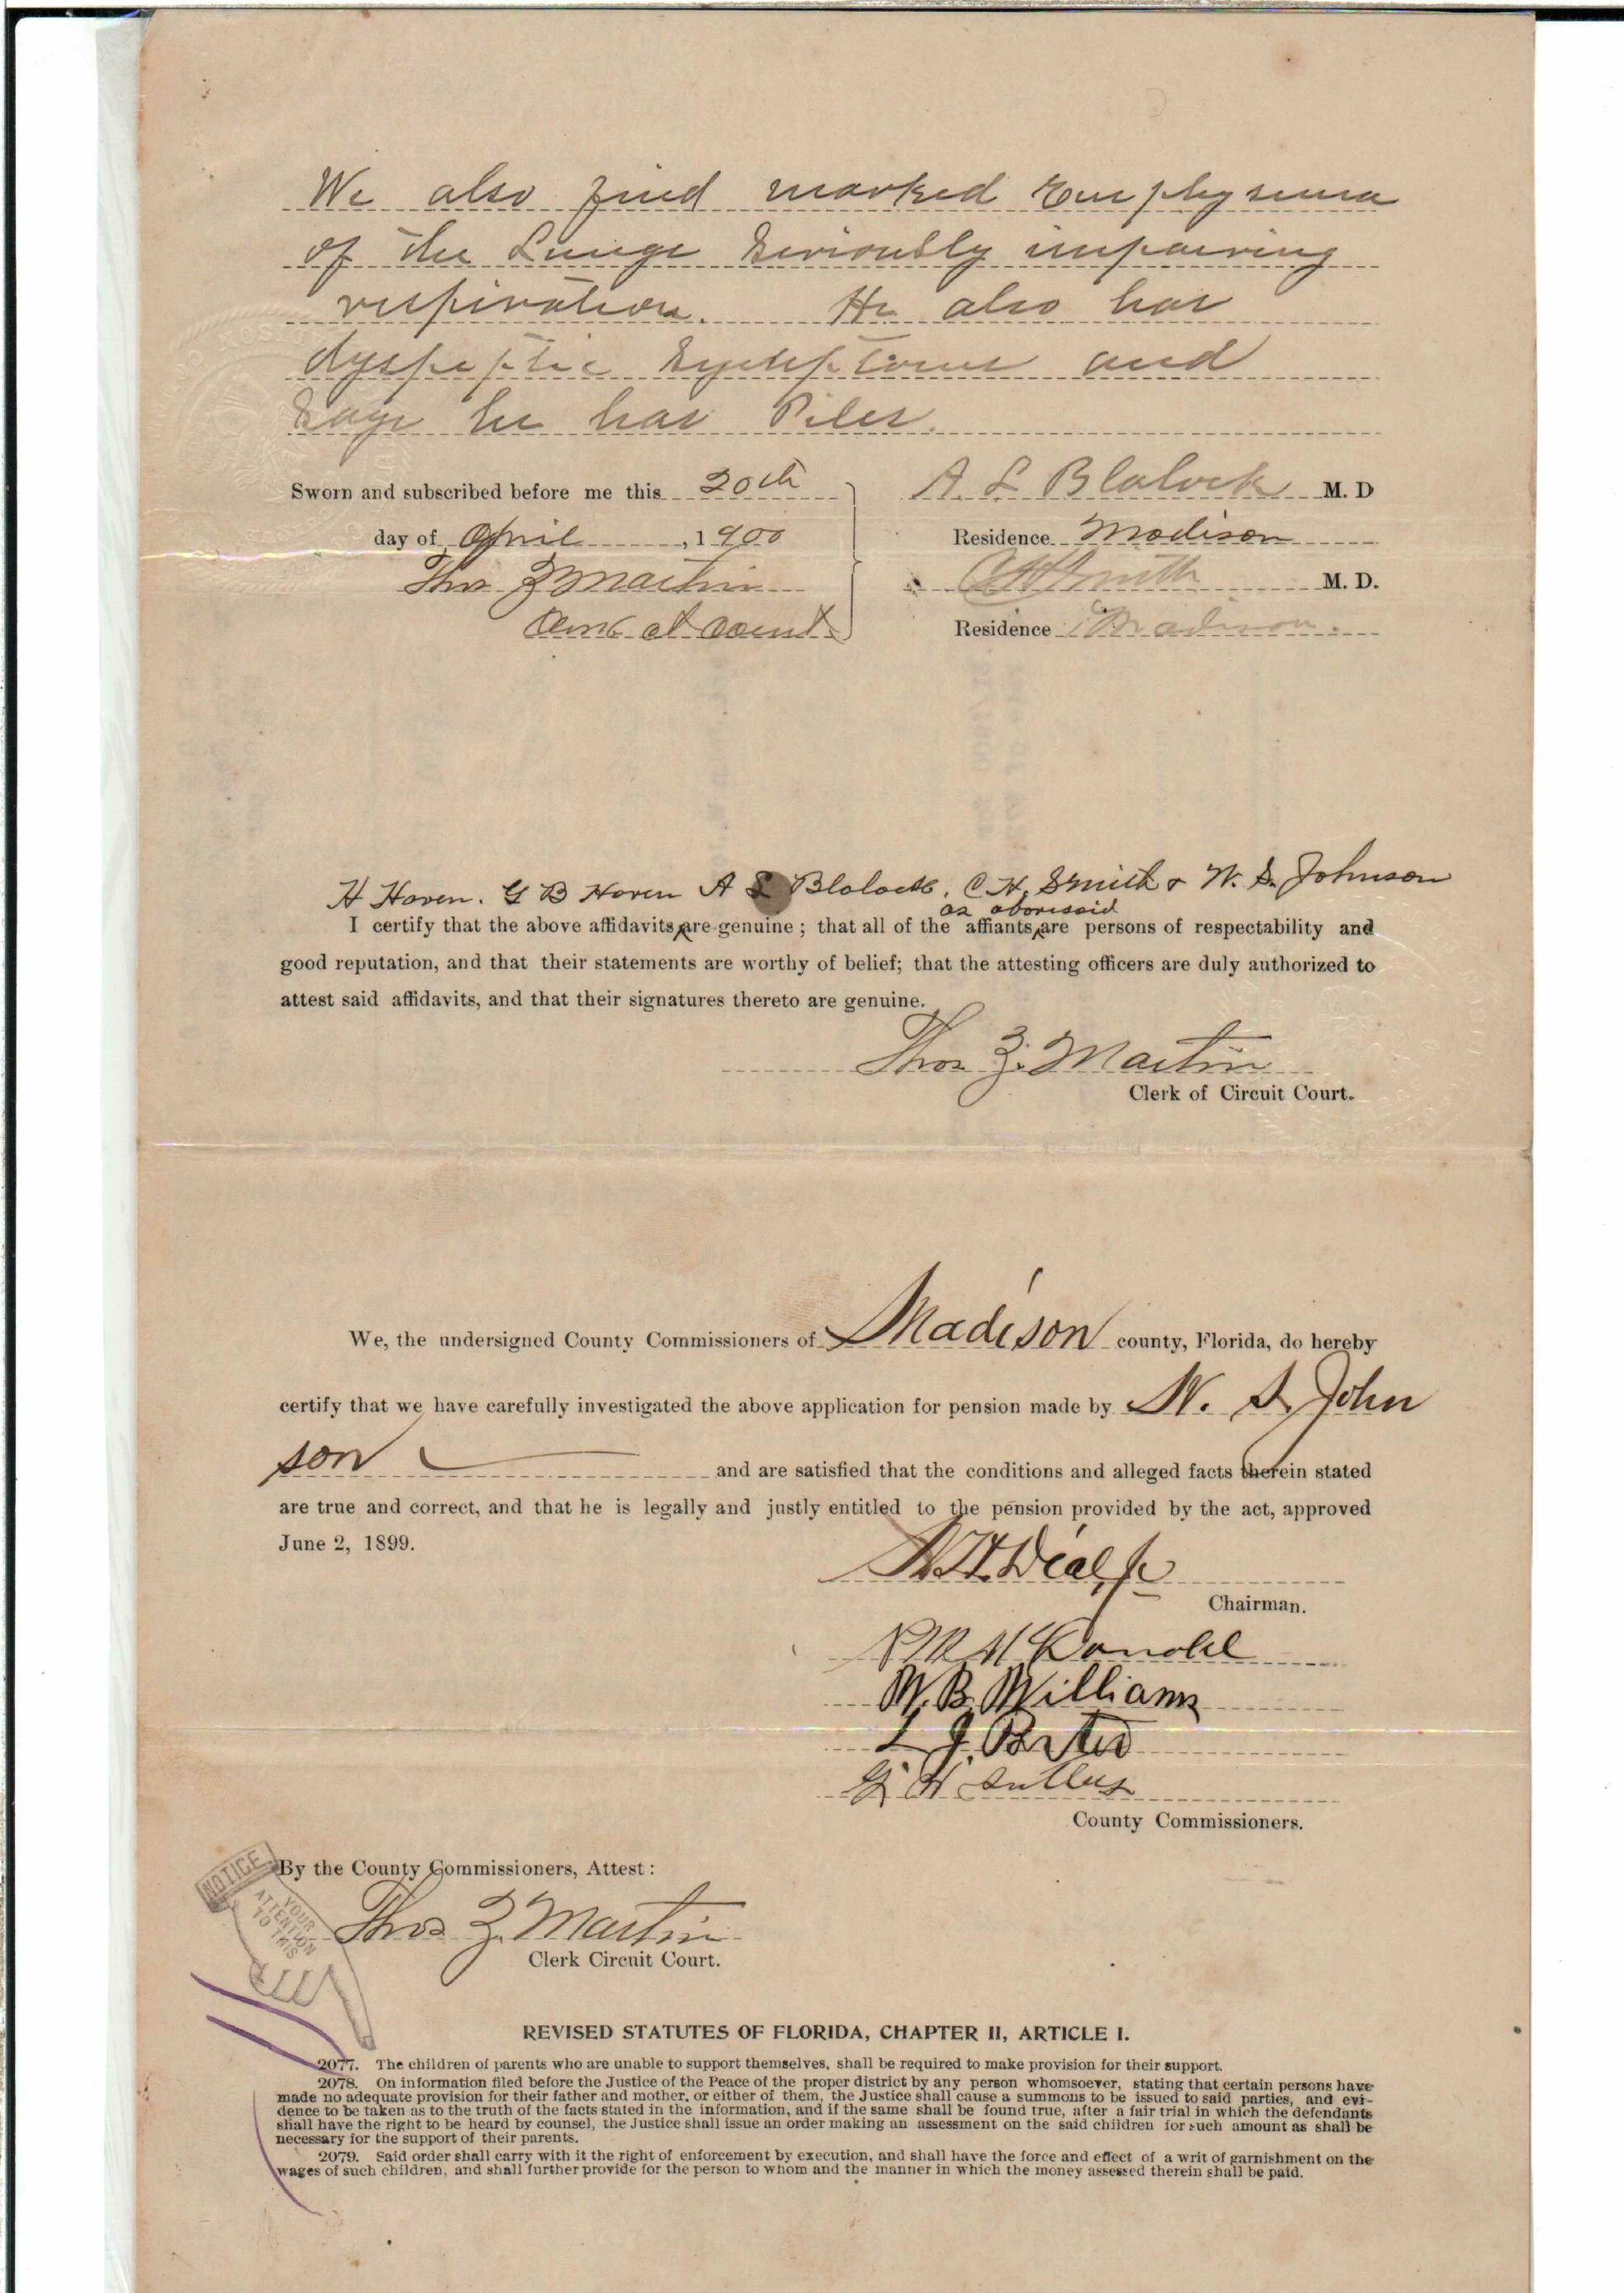 We also find marked Emphysema
of the Lungs seriously impairing
respiration. He also has
dyspeptic symptoms and
Says he has Piles.
Sworn and subscribed before me this 20th
day of April, 1900
Thos Z Martin
Clerk ct court
A. L Blalock M. D
Residence Madison
C H Smith M. D.
Residence Madison.
H Haven. G B Haven A L Blalock, C. H. Smith & W. S. Johnson
as aforesaid
I certify that the above affidavits are genuine; that all of the affiants are persons of respectability and
good reputation, and that their statements are worthy of belief; that the attesting officers are duly authorized to
attest said affidavits, and that their signatures thereto are genuine.
Thos Z. Martin
Clerk of Circuit Court.
We, the undersigned County Commissioners of Madison county, Florida, do hereby
certify that we have carefully investigated the above application for pension made by W. S. John
son and are satisfied that the conditions and alleged facts therein stated
are true and correct, and that he is legally and justly entitled to the pension provided by the act, approved
June 2, 1899.
Dial, Jr
Chairman.
W. B. Williams
L J. Porter
County Commissioners.
By the County Commissioners, Attest:
NOTICE
YOUR
ATTENTION
TO THIS
Thos Z. Martin
Clerk Circuit Court.
REVISED STATUTES OF FLORIDA, CHAPTER II, ARTICLE I.
2077. The children of parents who are unable to support themselves, shall be required to make provision for their support.
2078. On information filed before the Justice of the Peace of the proper district by any person whomsoever, stating that certain persons have
made no adequate provision for their father and mother, or either of them, the Justice shall cause a summons to be issued to said parties, and evi-
dence to be taken as to the truth of the facts stated in the information, and if the same shall be found true, after a fair trial in which the defendants
shall have the right to be heard by counsel, the Justice shall issue an order making an assessment on the said children for such amount as shall be
necessary for the support of their parents.
2079. Said order shall carry with it the right of enforcement by execution, and shall have the force and effect of a writ of garnishment on the
wages of such children, and shall further provide for the person to whom and the manner in which the money assessed therein shall be paid.